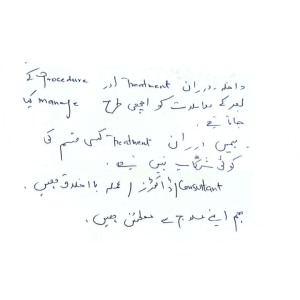 داخلہ، دوران Treatment اور Procedure کے
بعد کے معاملات کو اچھی طرح manage کیا
جاتا ہے۔
ہمیں دوران Treatment کسی قسم کی
کوئی شکایت نہیں ہے۔
Consultant / ڈاکٹرز / عملہ بااخلاق ہیں۔
ہم اپنے علاج سے مطمئن ہیں۔